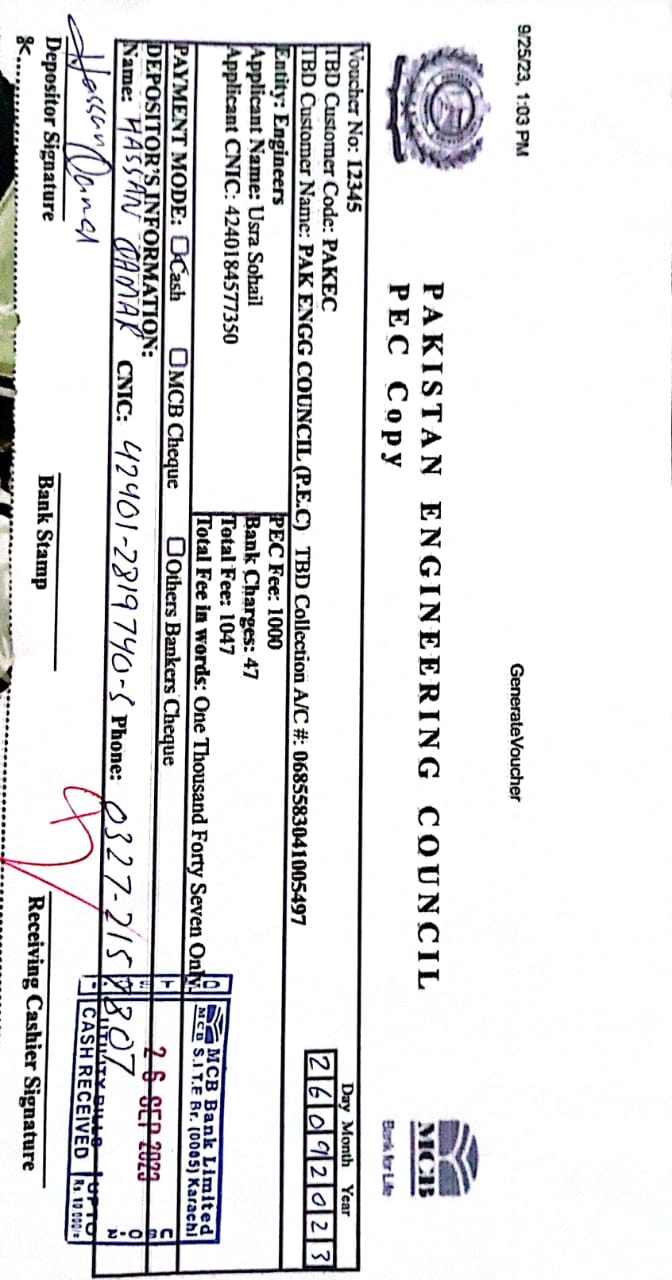 9/25/23, 1:03 PM
GenerateVoucher
PAKISTAN ENGINEERING COUNCIL
PEC Copy
MCB
Bank for Life
Day Month Year
26092023
Voucher No: 12345
TBD Customer Code: PAKEC
TBD Customer Name: PAK ENGG COUNCIL (P.E.C) TBD Collection A/C #: 0685583041005497
Entity: Engineers
Applicant Name: Usra Sohail
Applicant CNIC: 4240184577350
PEC Fee: 1000
Bank Charges: 47
Total Fee: 1047
Total Fee in words: One Thousand Forty Seven Only.
PAYMENT MODE: Cash MCB Cheque Others Bankers Cheque
DEPOSITOR'S INFORMATION:
Name: HASSAN CNIC: 42401-2819740-5 Phone: 0327-215
MCB Bank Limited
MCB S.I.T.E Br. (0065) Karachi
26 SEP 2023
UTILITY BILLS UPTO
CASH RECEIVED Rs. 10,000/=
Hassan
Depositor Signature
Bank Stamp
Receiving Cashier Signature